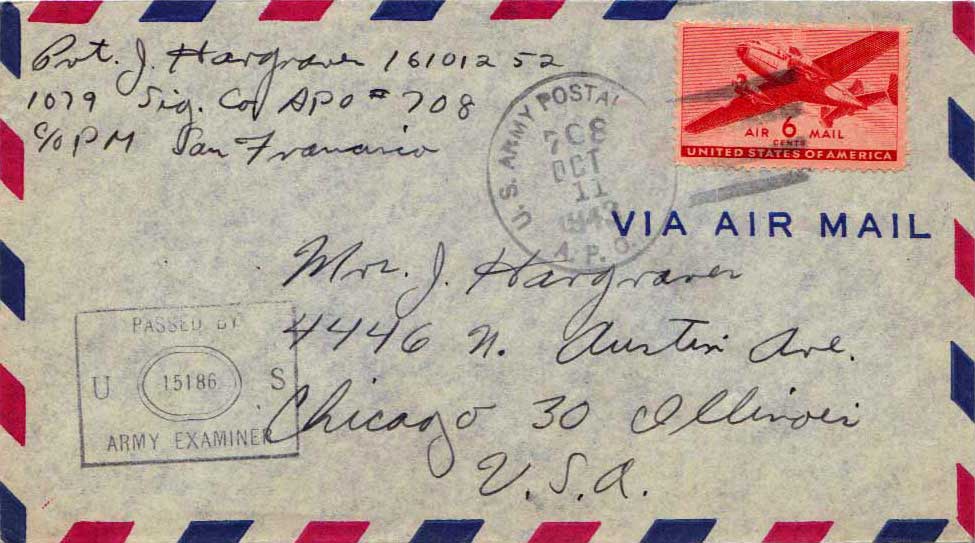 Pvt. J. Hargraves 16101252
1079 Sig. Co. APO # 708
C/O PM San Francisco
U.S. ARMY POSTAL
708
OCT
11
1943
A.P.O.
AIR 6 MAIL
CENTS
UNITED STATES OF AMERICA
VIA AIR MAIL
Mrs. J. Hargraves
4446 N. Austin Ave.
Chicago 30 Illinois
U.S.A.
PASSED BY
U 15186 S
ARMY EXAMINER